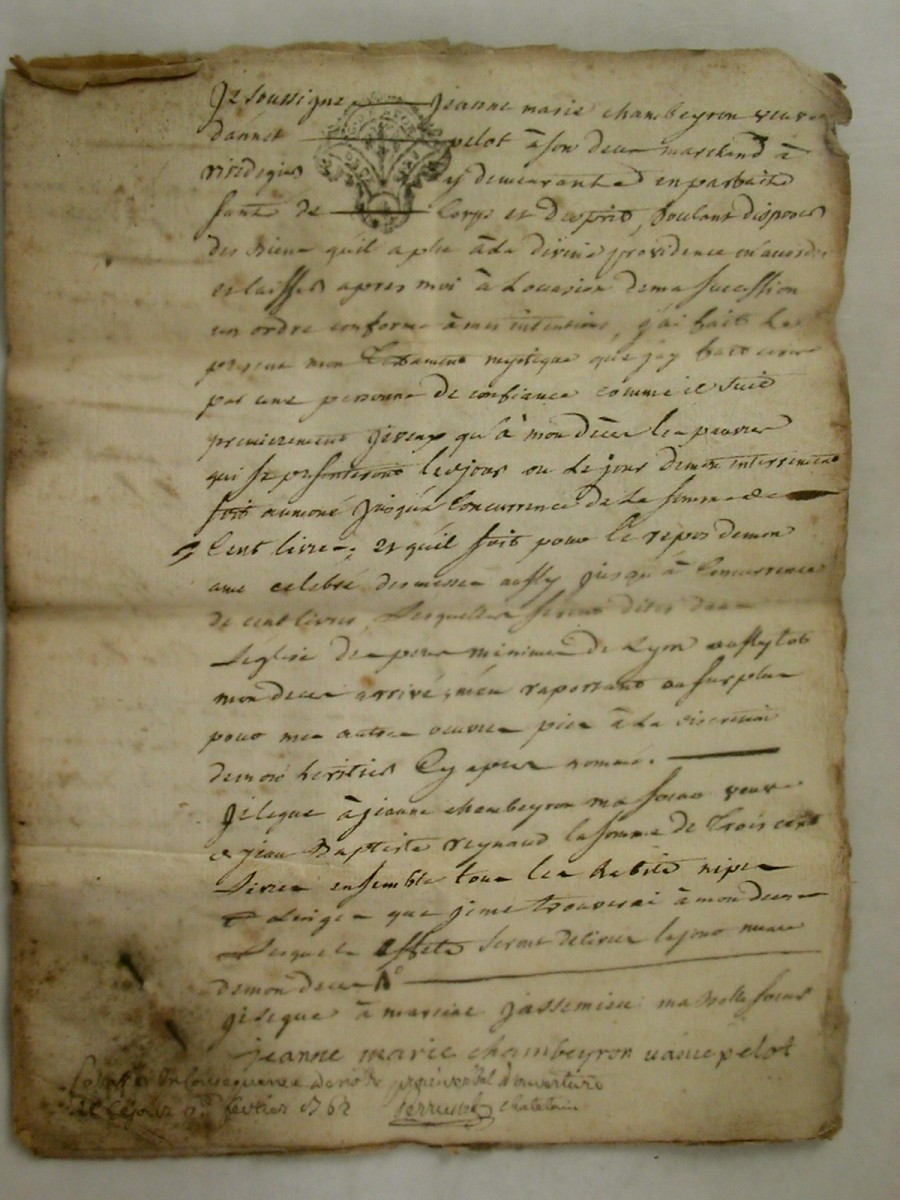 Je soussigné jeanne marie chambeyron veuve
dannet pelot à son decès marchand à
rivedegier y demeurante en parfaite
santé de Corps et desprit, voulant disposer
des biens quil a plu à la divine providence m'accorder
et laisser apres moi à L'occasion de ma succession
un ordre conforme à mes intentions, j'ai fait le
présent mon Testament mystique que j'ay fait écrire
par une personne de confiance comme il suit
premierement je veux qu'à mon décès les pauvres
qui se presenteront le jour ou Le jour de mon interrement
soit aumoné jusqu'à Concurrence de la somme de
Cent livres, et quil soit pour le repos de mon
ame celebré des messes aussy jusqu'à Concurrence
de cent livres, Lesquelles seront dites dans
L'eglise des peres minimes de Lyon aussytot
mon deces arrivé, m'en raportant au surplus
pour mes autres oeuvres pies à La discretion
de mon héritier Cy apres nommé.
Je legue à jeanne chambeyron ma soeur veuve
de jean Baptiste reynaud la somme de Trois cent
Livres ensemble tous les habits nipes
& Linges que je me trouverai à mon deces
Lesquels effets seront delivres le jour meme
de mon deces
je legue à marcine jassemieu ma belle soeur
jeanne marie chambeyron veuve pelot
en Consequence de notre procès verbal d'ouverture
de Cejour fevrier 1762 chatelain